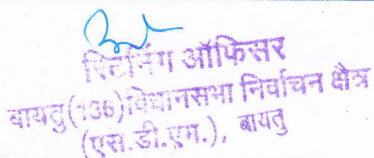 रिटर्निंग ऑफिसर
बायतु(136)विधानसभा निर्वाचन क्षेत्र
(एस.डी.एम.), बायतु